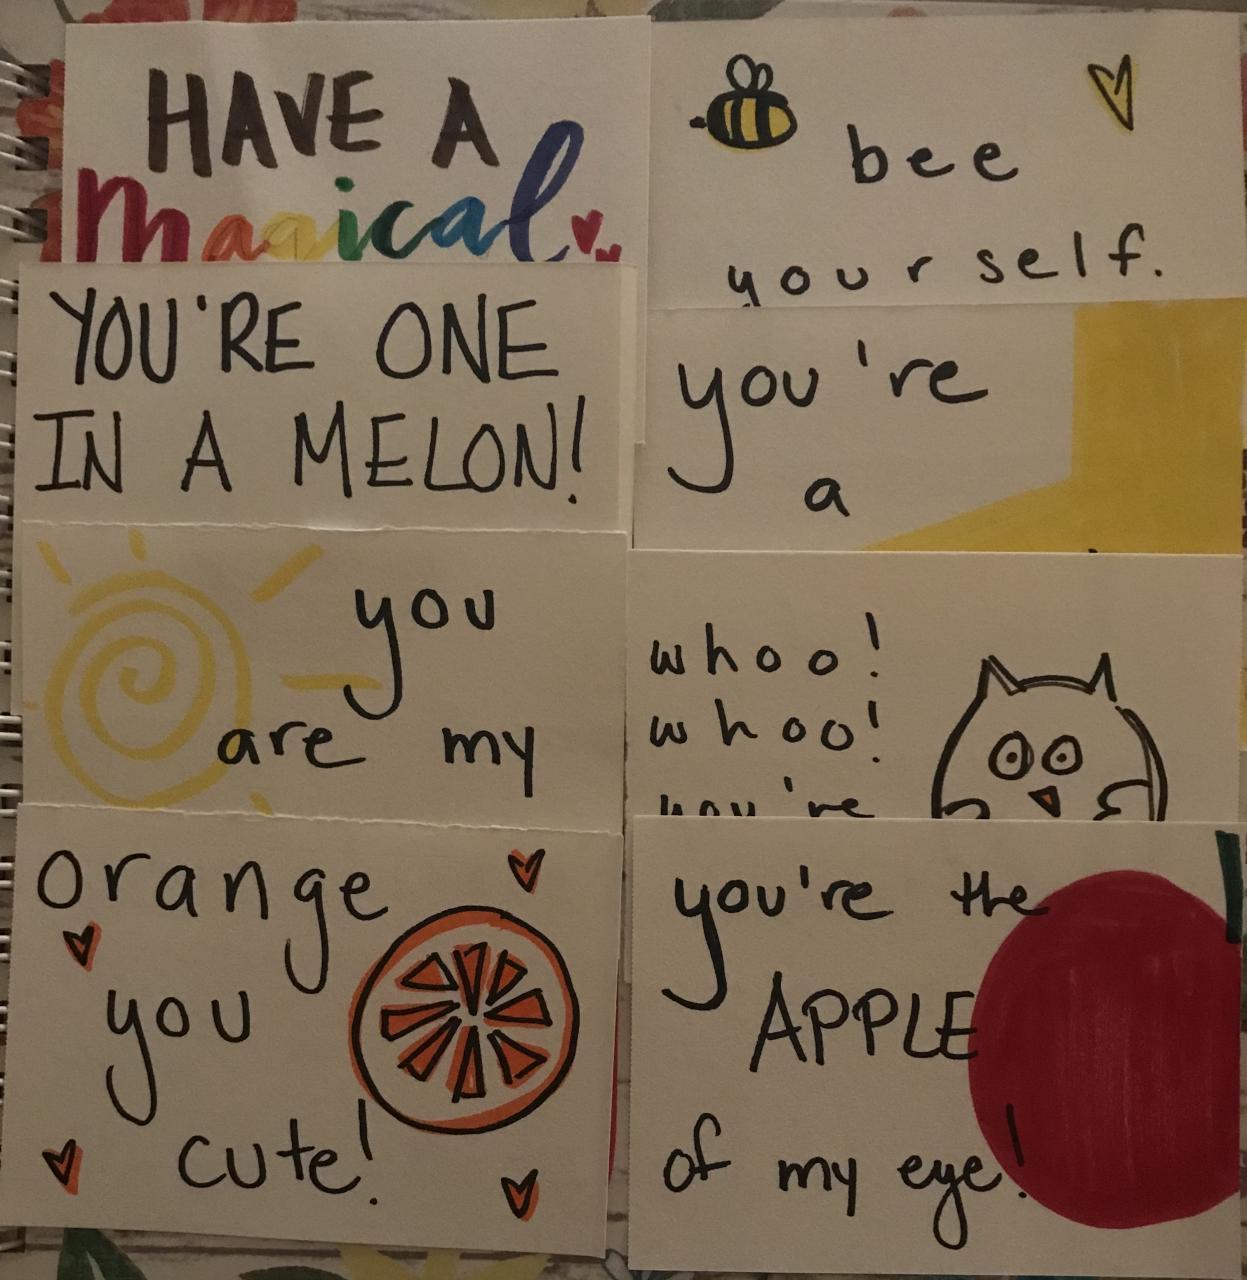 HAVE A
magical
bee
yourself.
YOU'RE ONE
IN A MELON!
you're
a
you
are my
whoo!
whoo!
you're
orange
you
cute!
you're the
APPLE
of my eye!